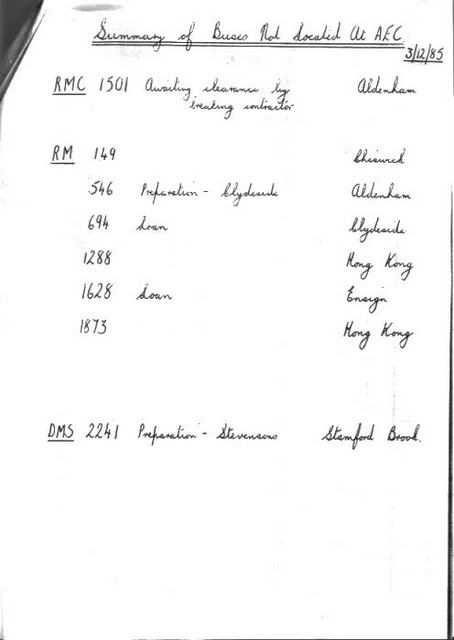 Summary of Buses Not Located At AEC
3/12/85
RMC 1501 Awaiting clearance by Aldenham
breaking contractor
RM 149 Chiswick
546 Preparation - Clydeside Aldenham
694 Loan Clydeside
1288 Hong Kong
1628 Loan Ensign
1873 Hong Kong
DMS 2241 Preparation - Stevensons Stamford Brook.